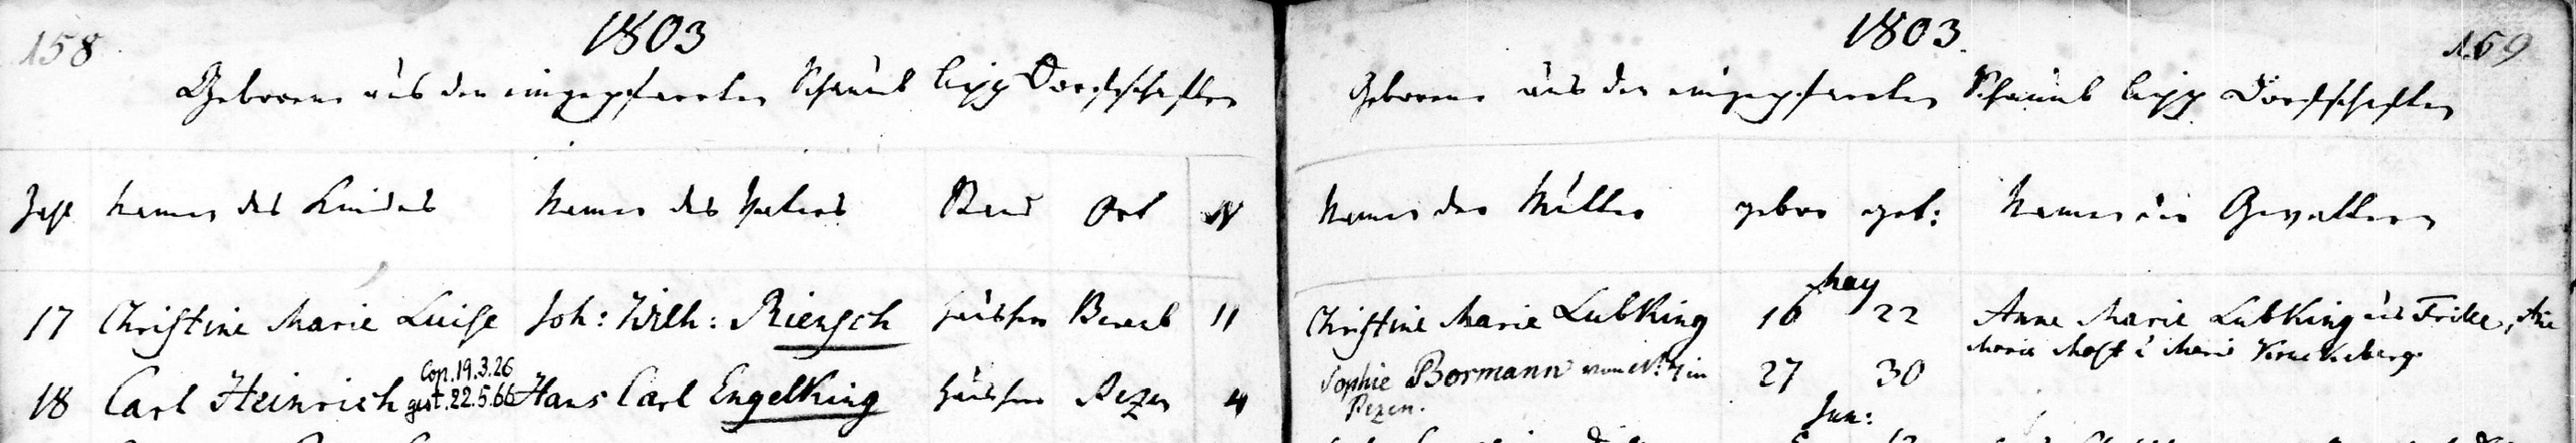 158
1803
Geborene aus den eingepfarrten Schaumb Lipp Dorfschaften
Zahl Namen des Kindes Namen des Vaters Stand Ort N
17 Christine Marie Luise Joh: Wilh: Riensch Häusler 11
Cop. 19.3.26
18 Carl Heinrich gest. 22.5.66 Hans Carl Engelking Häusler Pezen 4
1803.
159
Geborene aus den eingepfarrten Schaumb Lipp Dorfschaften
Namen der Mutter gebor get: Namen der Gevattern
May
Christine Marie Lubking 16 22 Anne Marie Lubking aus Frille,
Marie Marie
Sophie Bormann von N. 4 in 27 30
Pezen.
Jun: